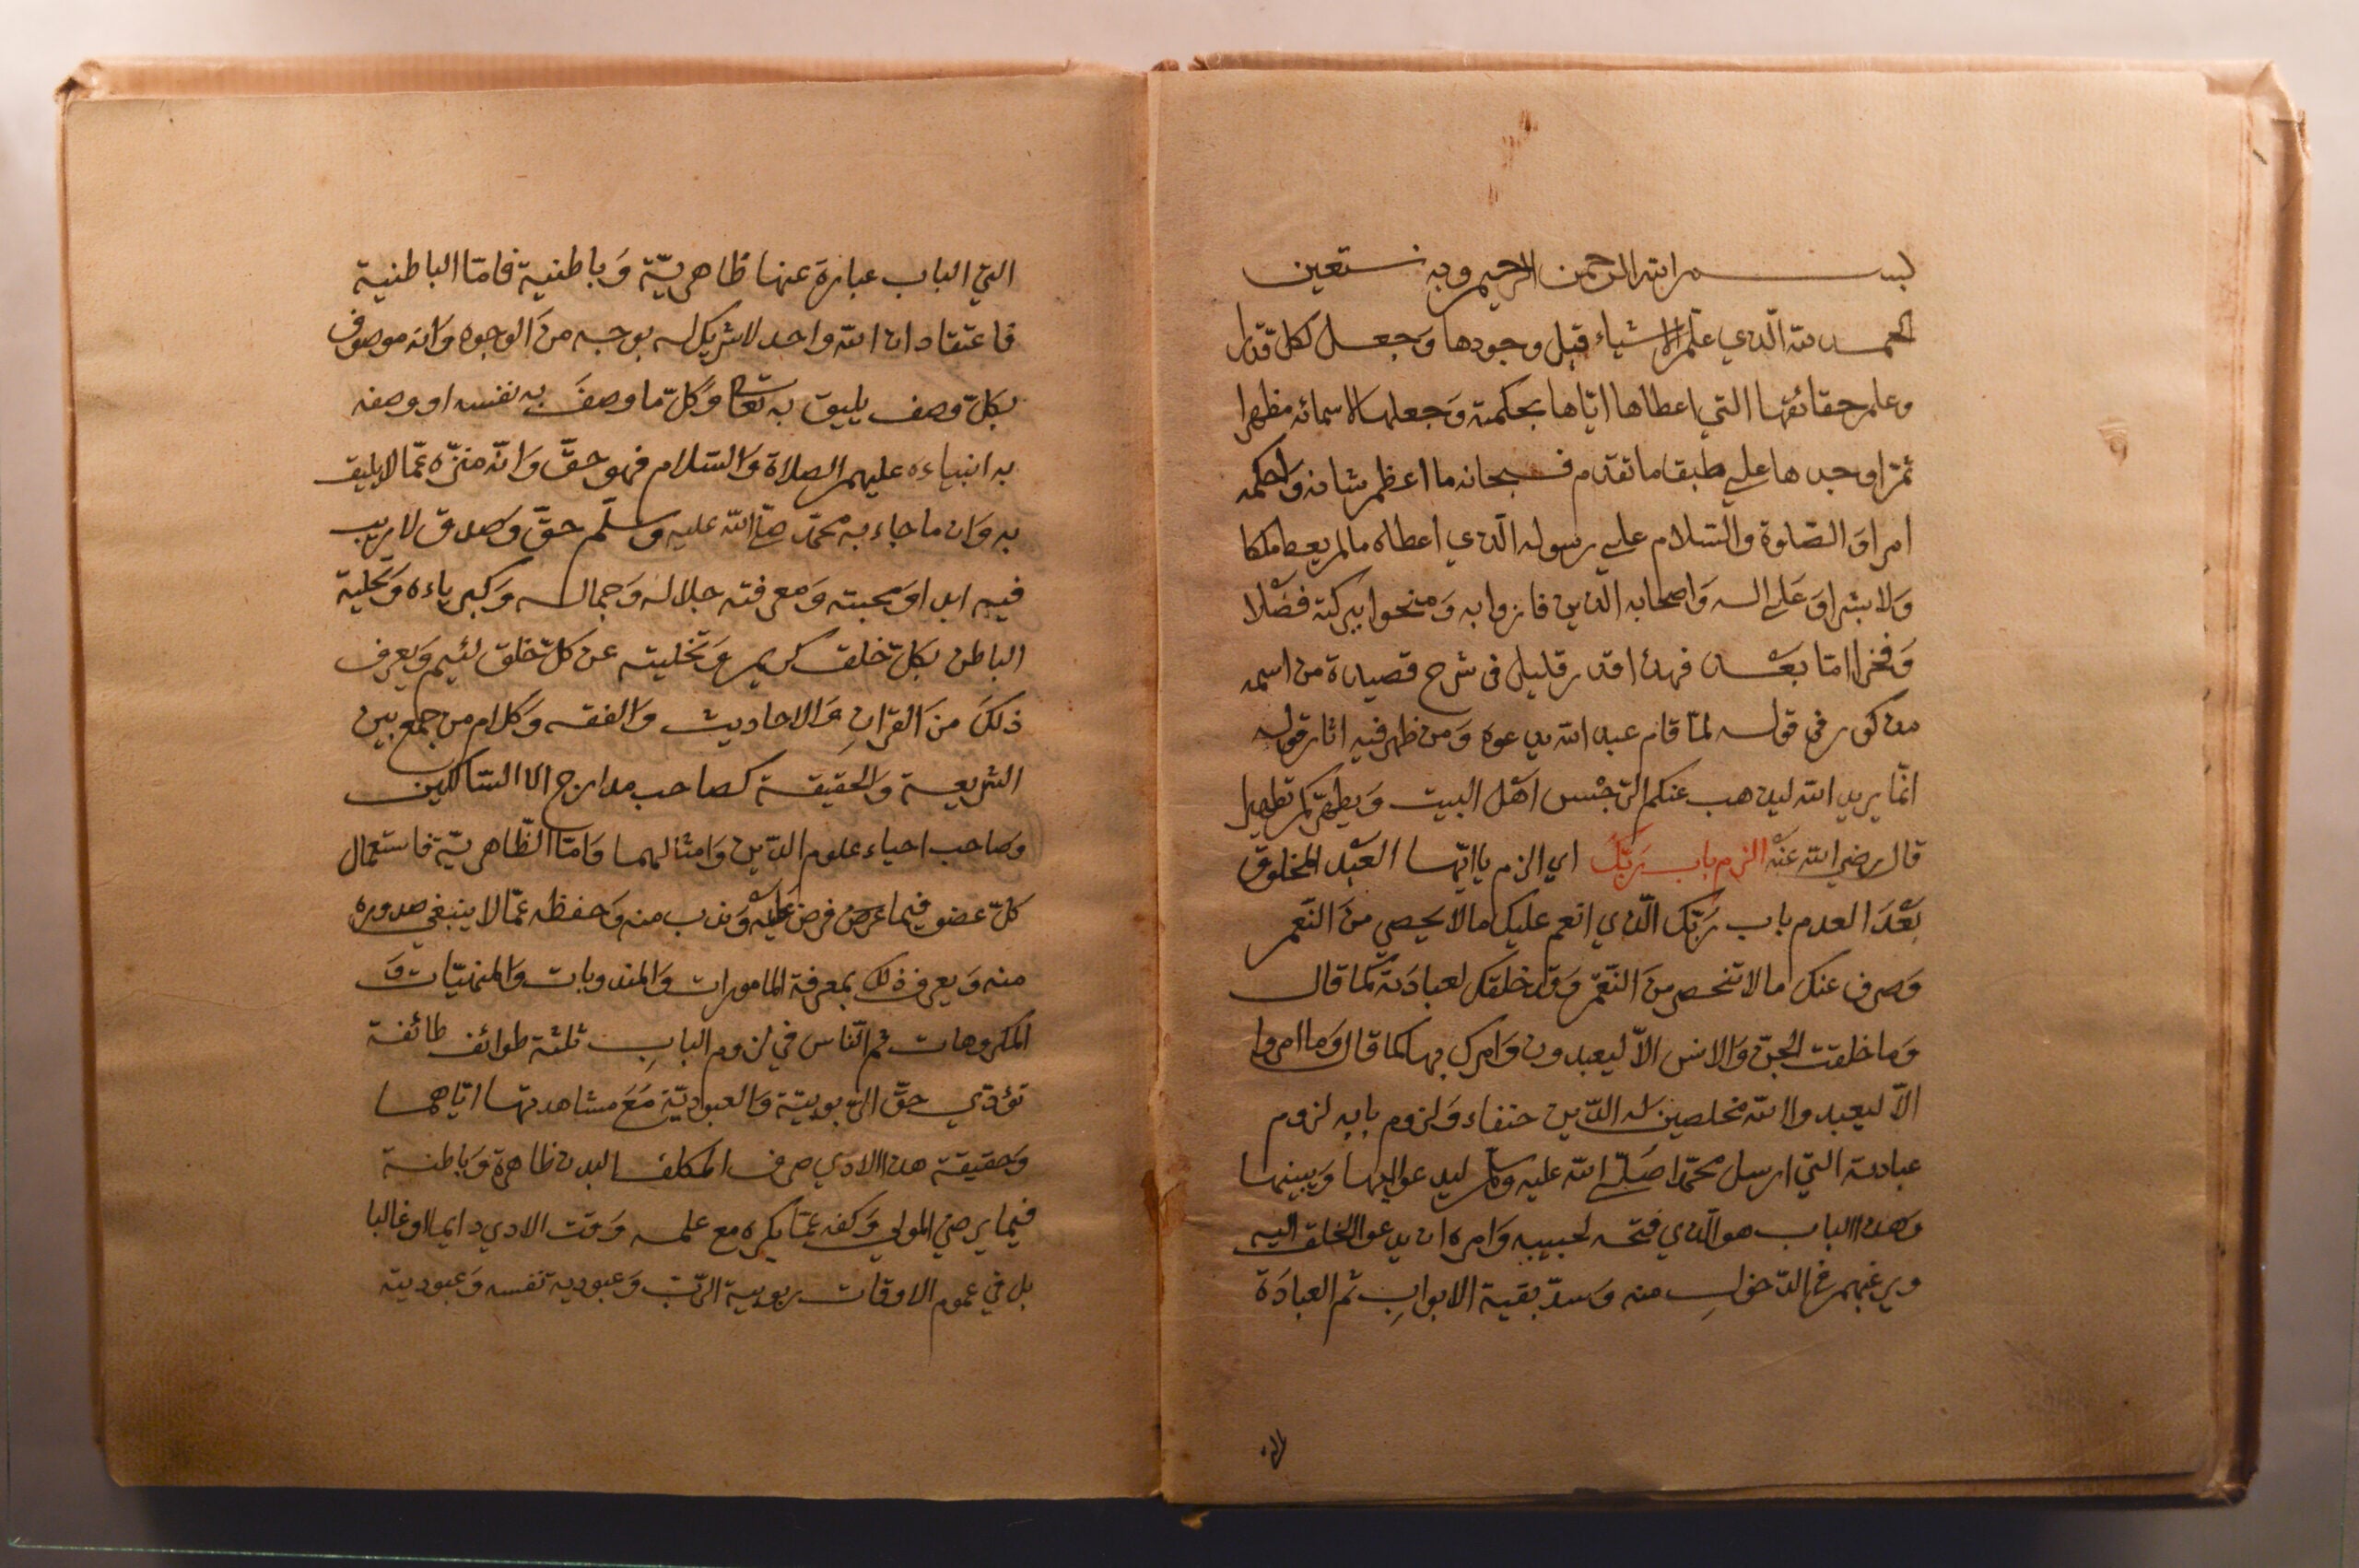 بسم الله الرحمن الرحيم وبه نستعين
الحمد لله الّذي علم الاشياء قبل وجودها وَجعل لكل قدرا
وعلم حقائقها التي اعطاها ايّاها بحكمته وَجعلها لاسمائه مظهرا
ثمّ اوجدها على طبق ما تقدم فسبحانه ما اعظم شانه وَاحكمه
امرا وَالصّلوة والسّلام علي رسوله الّذي اعطاه مالم يعط ملكا
وَلا بشرا وَعَلى اله وَاصحابه الّذين فازوا به وَمنحوا ببركته فضْلا
وَفخرا امّا بعْد فهذا قدر قليل فى شرح قصيدة من اسمه
مذكور في قوله لمّا قام عبد الله يدعوه وَمن ظهر فيه اثار قوله
انّما يريد الله ليذهب عنكم الرّجْس اهْل البيت وَيطهّركم تطهيرا
قال رضي الله عَنْه الزم باب رَبّكَ اي الزم يا ايّها العبْد المخلوق
بعْدَ العدم باب رَبّك الّذي انعم عليك مالا يحصي منَ النّعم
وَصرف عنك مالا تنحصر منَ النّقم وَقد خلقك لعبادَته كما قال
وَما خلقت الجنّ وَالانس الاّ ليعبدون وَامرك بها كما قال وَما امروا
الاّ ليعبدوا الله مخلصين له الدّين حنفاء وَلزوم بابه لزوم
عبادته التي ارسل محمّدا صَلّى الله عليه وسلّم ليدعو اليها وَيبينها
وَهذا الباب هو الّذي فتحه لحبيبه وَامره ان يدعو الخلق اليه
ويرغبهم في الدّخولِ منه وَسدّ بقية الابوابِ ثم العبادَة
التي
التي الباب عبارة عنها ظاهريّة وَباطنية فامّا الباطنية
فاعتقاد ان الله واحد لا شريك له بوجه منَ الوجوه وَانه موصوف
بكلّ وصف يليق به تعالى وَكلّ ما وصفَ به نفسه او وصفه
به انبياءه عليهم الصلاة وَالسّلام فهو حقّ وَانّه منزّه عمّا لا يليق
به وَان ما جاء به محمّد صلّى الله عليه وسلّم حقّ وَصدق لا ريب
فيه ابدا وَمحبته وَمعرفته جلاله وَجماله وَكبرياءه وَتحلية
الباطن بكلّ خلق كريم وَتخليته عن كلّ خلق لئيم وَيعرف
ذلكَ منَ القرانِ وَالاحاديث وَالفقه وَكلام من جمع بين
الشريعة وَالحقيقة كصاحب مدارج السّالكين
وصَاحب احياء علوم الدّين وَامثالهما وَامّا الظّاهريّة فاستعمال
كلّ عضو فيما فرض عليْه وَندب منه وَحفظه عمّا لا ينبغي صدوره
منه وَيعرف ذلك بمعرفة المامورات وَالمندوبات وَالمنهيّات وَ
المكروهات ثم النّاس في لزوم البابِ ثلثة طوائف طائفة
تؤدّي حقّ الرّبوبيّة وَالعبوديّة مَعَ مشاهدتها ايّاهما
وَحقيقة هذا الادي صرف المكلف البدن ظاهرة وَباطنة
فيما يرضي المولي وَكفه عمّا يكره مع علمه وَقت الادي دايما او غالبا
بل في عموم الاوقات ربوبية الرّبّ وَعبودية نفسه وَعبودية